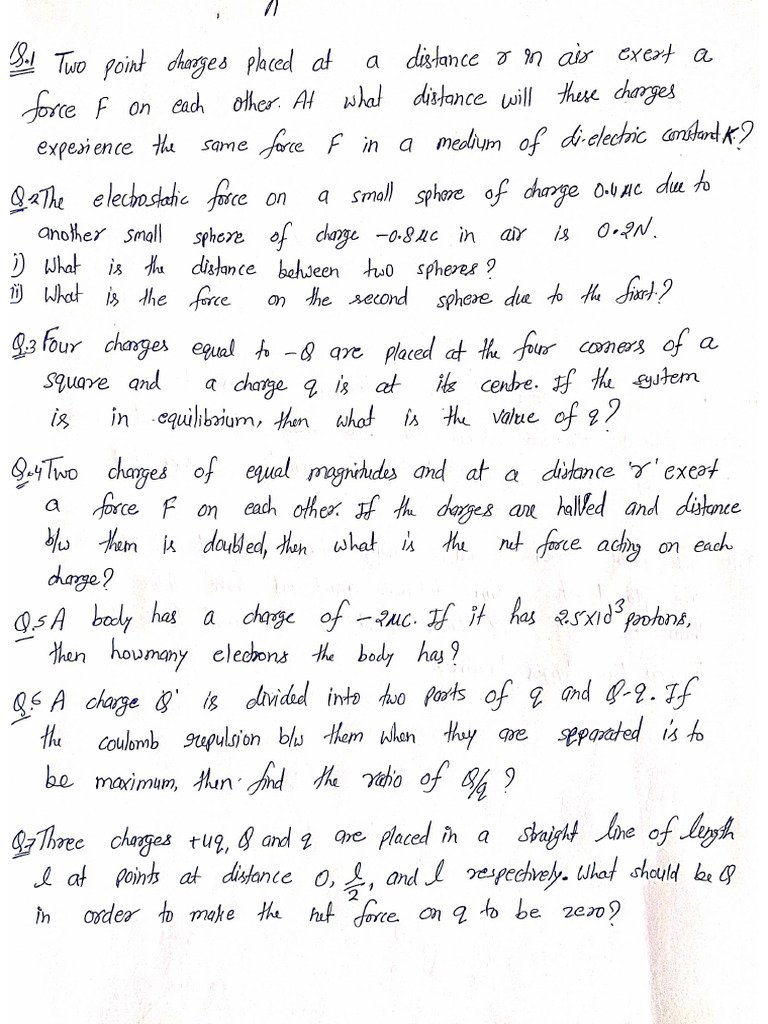 Q.1 Two point charges placed at a distance r in air exert a
force F on each other. At what distance will these charges
experience the same force F in a medium of di-electric constant K?
Q.2 The electrostatic force on a small sphere of charge 0.4 μC due to
another small sphere of charge -0.8 μC in air is 0.2N.
i) What is the distance between two spheres?
ii) What is the force on the second sphere due to the first.?
Q.3 Four charges equal to -Q are placed at the four corners of a
square and a charge q is at its centre. If the system
is in equilibrium, then what is the value of q?
Q.4 Two charges of equal magnitudes and at a distance 'r' exert
a force F on each other. If the charges are halved and distance
b/w them is doubled, then what is the net force acting on each
charge?
Q.5 A body has a charge of -2μC. If it has 2.5×10³ protons,
then howmany electrons the body has?
Q.6 A charge Q' is divided into two parts of q and Q-q. If
the coulomb repulsion b/w them when they are separated is to
be maximum, then find the ratio of Q/q ?
Q.7 Three charges +4q, Q and q are placed in a straight line of length
l at points at distance 0, l/2, and l respectively. What should be Q
in order to make the net force on q to be zero?